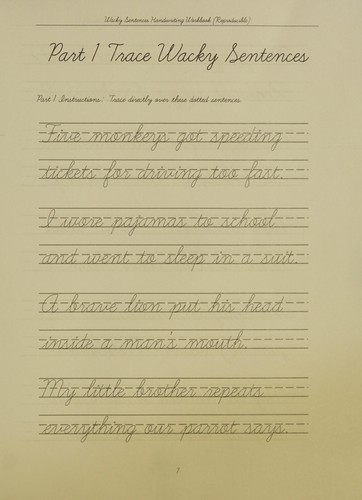 Wacky Sentences Handwriting Workbook (Reproducible)
Part 1 Trace Wacky Sentences
Part 1 Instructions: Trace directly over these dotted sentences.
Five monkeys got speeding
tickets for driving too fast.
I wore pajamas to school
and went to sleep in a suit.
A brave lion put his head
inside a man's mouth.
My little brother repeats
everything our parrot says.
7